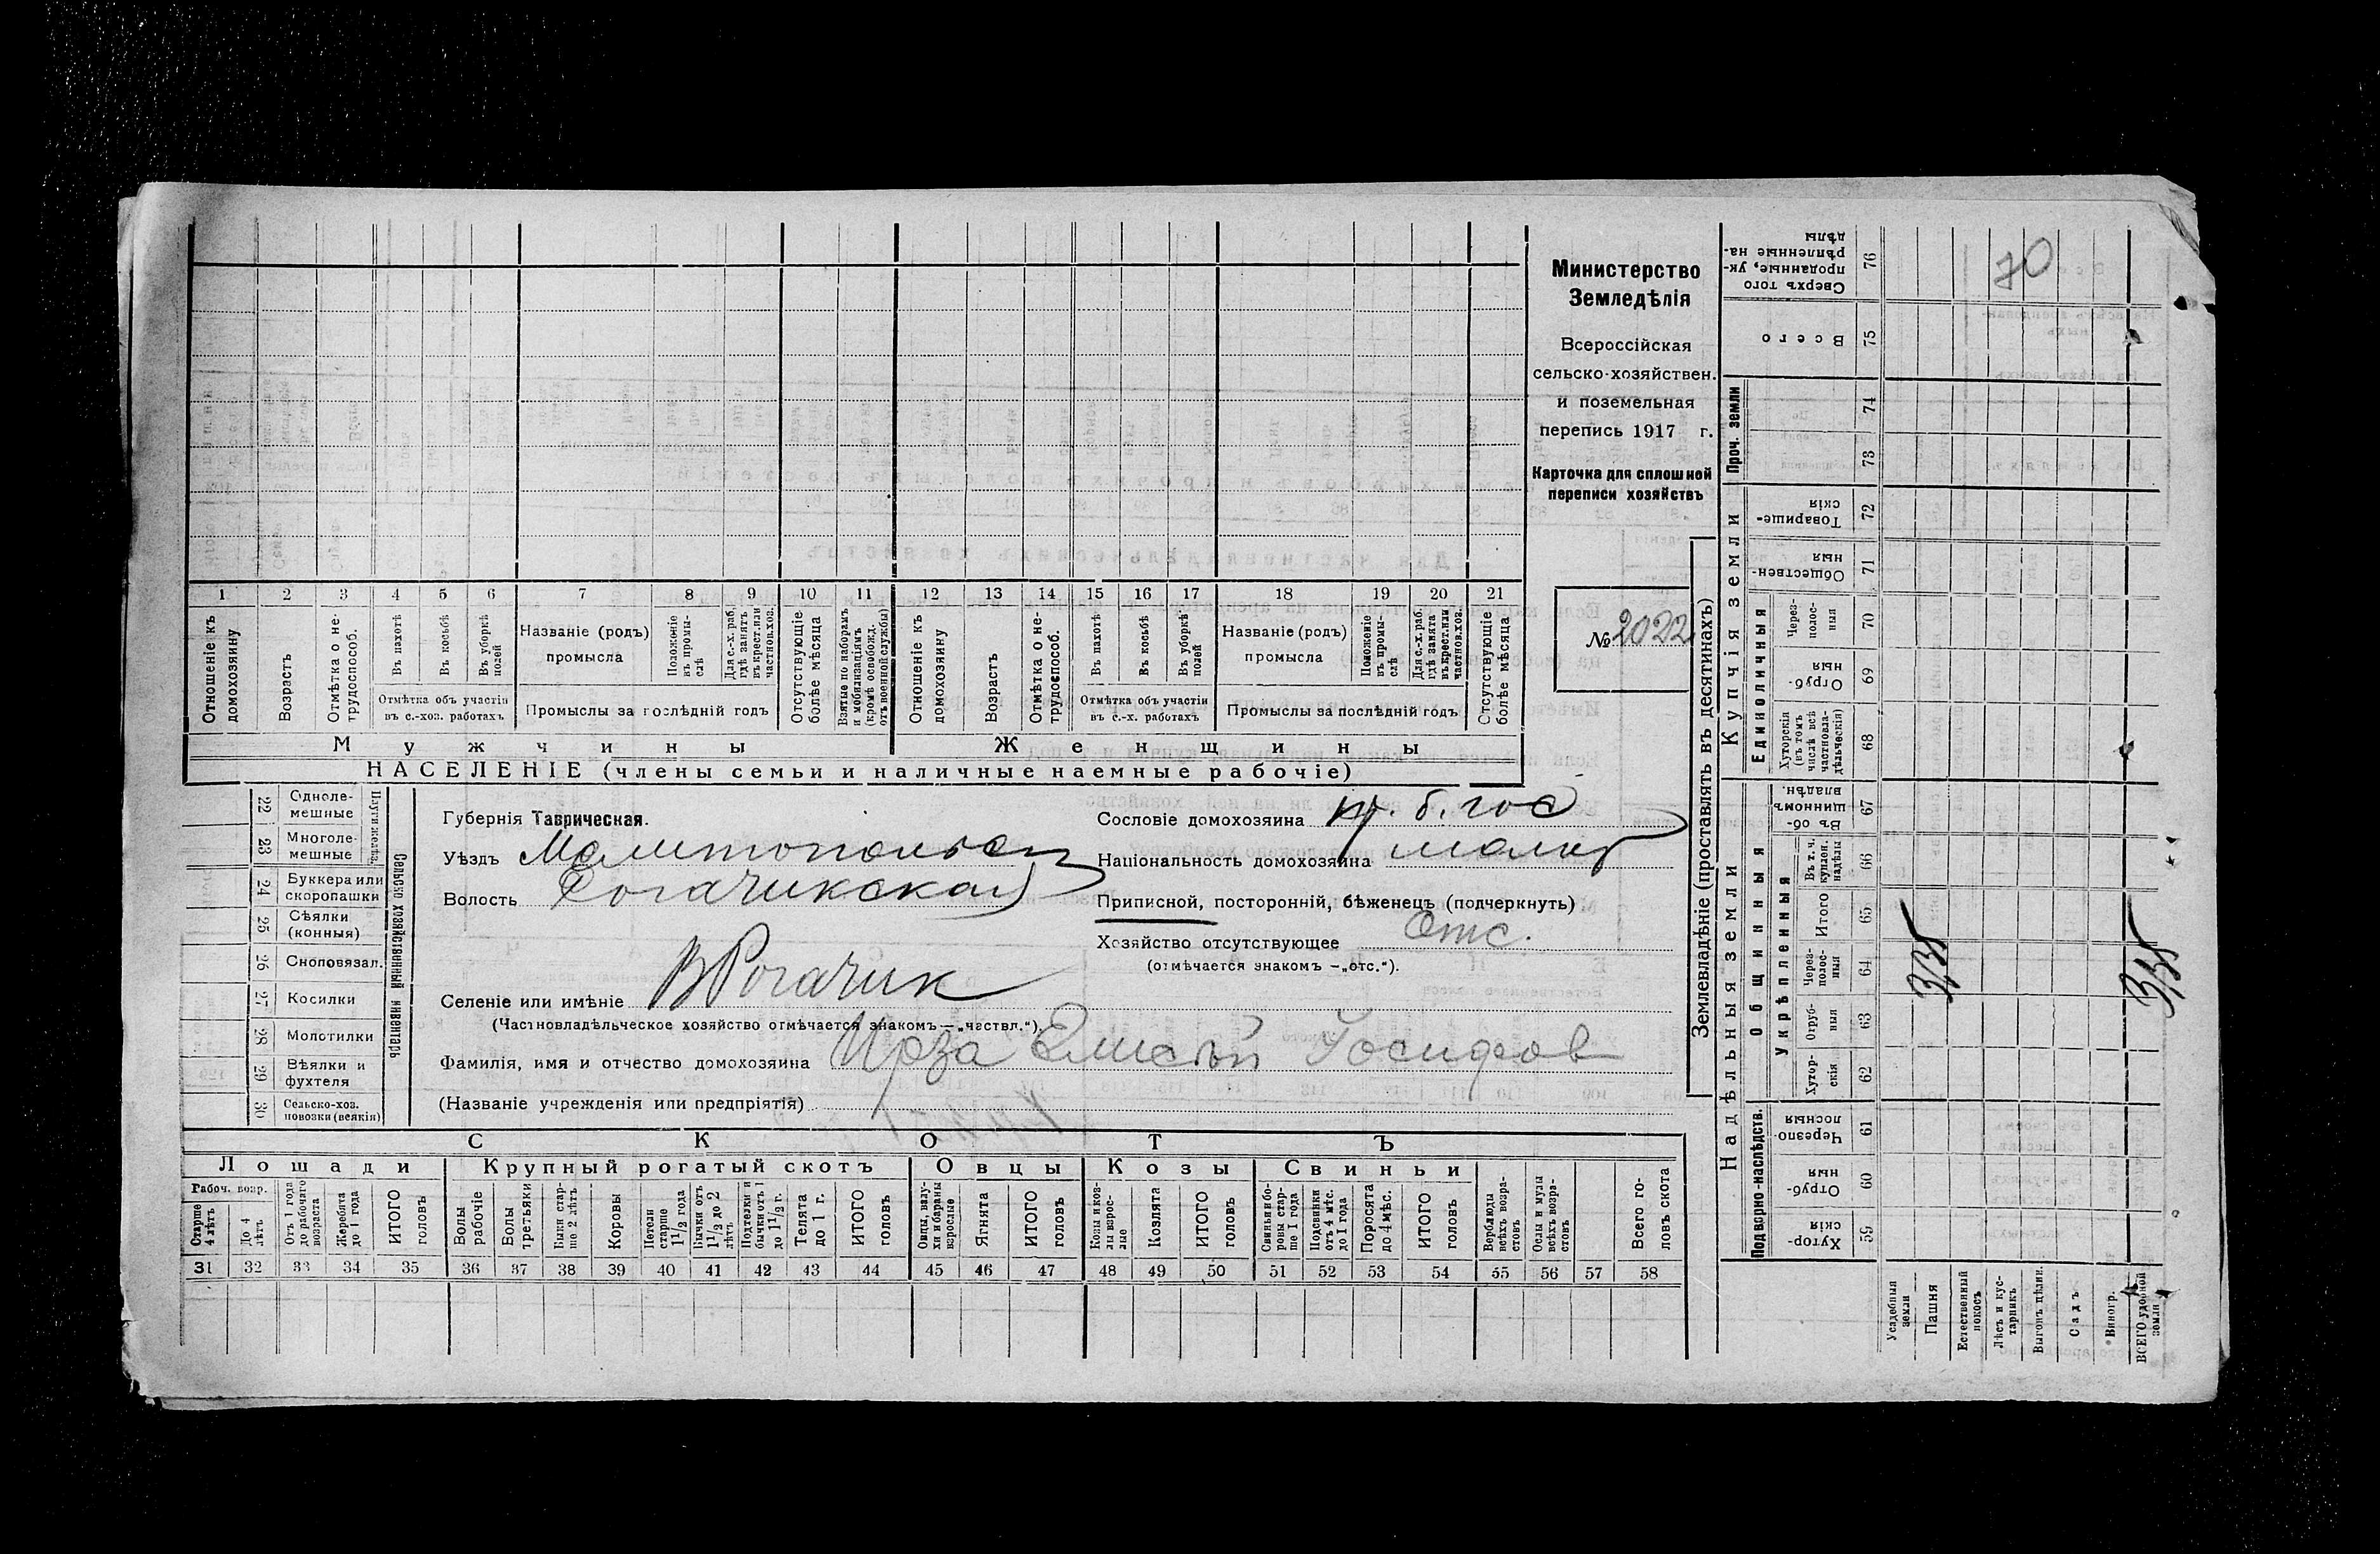 Министерство
Земледѣлія
Всероссійская
сельско-хозяйствен.
и поземельная
перепись 1917 г.
Карточка для сплошной
переписи хозяйствъ
№ 2022
1 2 3 4 5 6 7 8 9 10 11 12 13 14 15 16 17 18 19 20 21
Отношеніе къ домохозяину
Возрастъ
Отмѣтка о не-трудоспособ.
Въ пахотѣ
Въ косьбѣ
Въ уборкѣ полей
Отмѣтка объ участіи въ с.-хоз. работахъ
Названіе (родъ) промысла
Положеніе въ промы-слѣ
Для с.-х. раб. гдѣ занятъ въ крест. или частнов. хоз.
Промыслы за послѣдній годъ
Отсутствующіе болѣе мѣсяца
Взятые по наборамъ и мобилизаціямъ (кромѣ освобожд. отъ военной службы)
Отношеніе къ домохозяину
Возрастъ
Отмѣтка о не-трудоспособ.
Въ пахотѣ
Въ косьбѣ
Въ уборкѣ полей
Отмѣтка объ участіи въ с.-х. работахъ
Названіе (родъ) промысла
Положеніе въ промы-слѣ
Для с.-х. раб. гдѣ занята въ крест. или частнов. хоз.
Промыслы за послѣдній годъ
Отсутствующіе болѣе мѣсяца
Мужчины Женщины
НАСЕЛЕНІЕ (члены семьи и наличные наемные рабочіе)
Сельско хозяйственный инвентарь
22 Одноле-мешные
23 Многоле-мешные
24 Буккера или скоропашки
25 Сѣялки (конныя)
26 Сноповязал.
27 Косилки
28 Молотилки
29 Вѣялки и фухтеля
30 Сельско-хоз. повозки (всякія)
Губернія Таврическая.
Уѣздъ Мелитопольск
Волость Рогачикская
Селеніе или имѣніе В Рогачик
(Частновладѣльческое хозяйство отмѣчается знакомъ — „частвл.“).
Фамилія, имя и отчество домохозяина Ирза Елисѣй Іосифов
(Названіе учрежденія или предпріятія)
Сословіе домохозяина кр. б. гос
Національность домохозяина малор
Приписной, посторонній, бѣженецъ (подчеркнуть)
Хозяйство отсутствующее Отс.
(отмѣчается знакомъ — „отс.“).
СКОТЪ
Лошади Крупный рогатый скотъ Овцы Козы Свиньи
Рабоч. возр.
Старше 4 лѣтъ
До 4 лѣтъ
Отъ 1 года до рабочаго возраста
Жеребята до 1 года
ИТОГО головъ
Волы рабочіе
Волы третьяки
Быки стар-ше 2 лѣтъ
Коровы
Нетели старше 1½ года
Бычки отъ 1½ до 2 лѣтъ
Подтелки и бычки отъ 1 до 1½ г.
Телята до 1 г.
ИТОГО головъ
Овцы, валу-хи и бараны взрослые
Ягнята
ИТОГО головъ
Козы и коз-лы взрос-лые
Козлята
ИТОГО головъ
Свиньи и бо-ровы стар-ше 1 года
Подсвинки отъ 4 мѣс. до 1 года
Поросята до 4 мѣс.
ИТОГО головъ
Верблюды всѣхъ возра-стовъ
Ослы и мулы всѣхъ возра-стовъ
Всего го-ловъ скота
31 32 33 34 35 36 37 38 39 40 41 42 43 44 45 46 47 48 49 50 51 52 53 54 55 56 57 58
Землевладѣніе (проставлять въ десятинахъ)
Купчія земли
Надѣльныя земли
Проч. земли
Единоличныя
Общинныя
Укрѣпленныя
Подворно-наслѣдств.
76 Сверхъ того проданные, ук-рѣпленные на-дѣлы
75 Всего
74
73
72 Товарище-скія
71 Обществен-ныя
70 Через-полос-ныя
69 Отруб-ныя
68 Хуторскія (въ томъ числѣ всѣ частновла-дѣльческія)
67 Въ об-щинномъ владѣн.
66 Въ т. ч. куплен. надѣлы
65 Итого
64 Через-полос-ныя
63 Отруб-ныя
62 Хутор-скія
61 Черезпо-лосныя
60 Отруб-ныя
59 Хутор-скія
70
Усадебныя земли
Пашня
Естественный покосъ
Лѣсъ и кус-тарникъ
Выгонъ цѣлин.
Садъ
Виногр.
ВСЕГО удобной земли